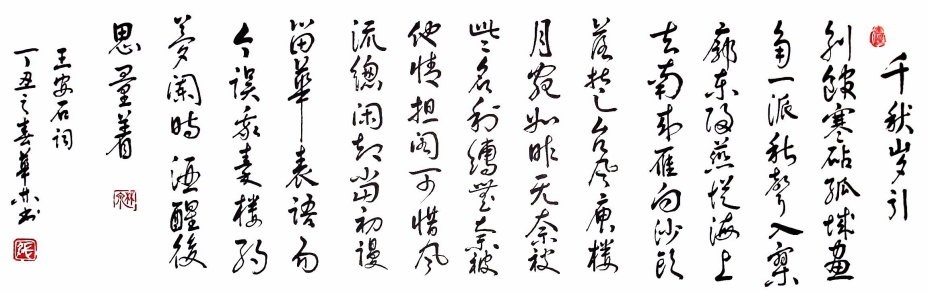 千秋岁引
别馆寒砧孤城画
角一派秋声入寥
廓东归燕从海上
去南来雁向沙头
落楚台风庾楼
月宛如昨无奈被
些名利缚无奈被
他情担阁可惜风
流總闲却当初谩
留華表语而
今误我秦楼约
梦阑时酒醒後
思量着
王安石词
丁丑之春 书